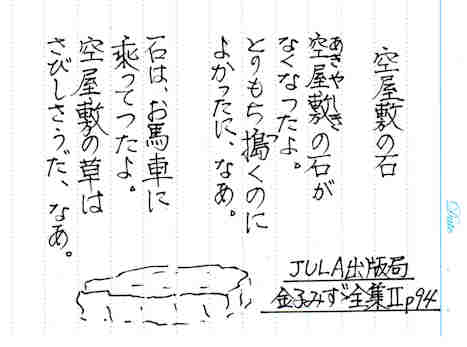 空屋敷の石
空屋敷の石が
あきやしき
なくなつたよ。
とりもち搗くのに
つ
よかったに、なあ。
石は、お馬車に
乗ってつたよ。
空屋敷の草は
さびしさうだ、なあ。
JULA出版局
金子みすゞ全集Ⅱp94
Date